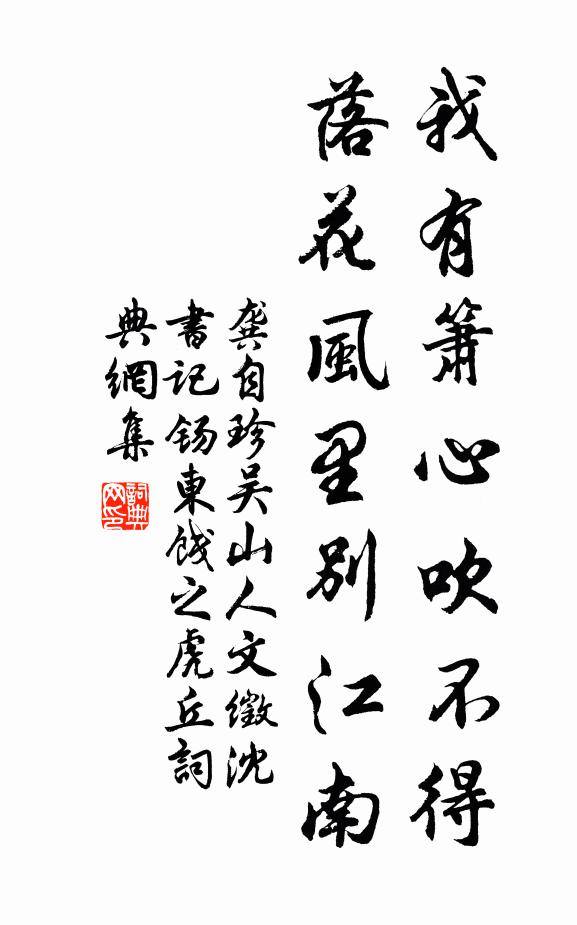 我有箫心吹不得
落花風里别江南
龚自珍吴山人文徵沈
書记钖東饯之虎丘詞
典網集
詞典網印